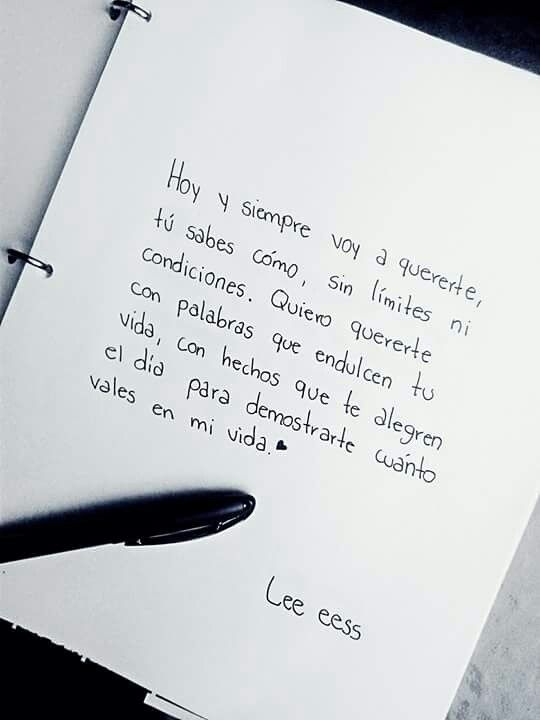 Hoy y siempre voy a quererte,
tú sabes cómo, sin límites ni
condiciones. Quiero quererte
con palabras que endulcen tu
vida, con hechos que te alegren
el día para demostrarte cuánto
vales en mi vida.
Lee eess